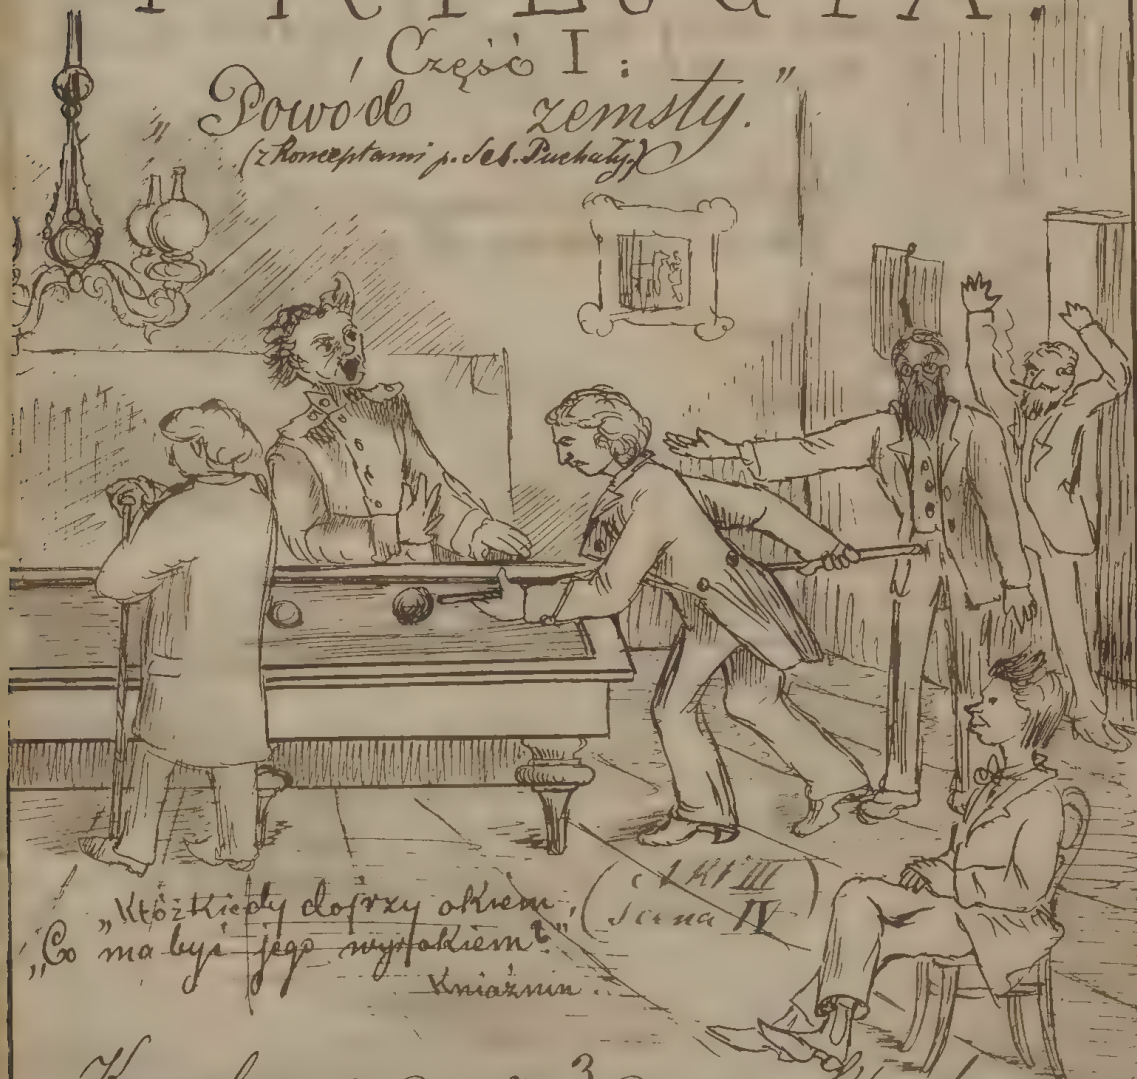 TRYLOGIA.
Część I:
„Powód zemsty."
(z konceptami p. Seb. Puchały)
„Któż kiedy dojrzy okiem,
„Co ma być jego wyrokiem?"
Kniaźnin.
(Akt III
Scena IV)